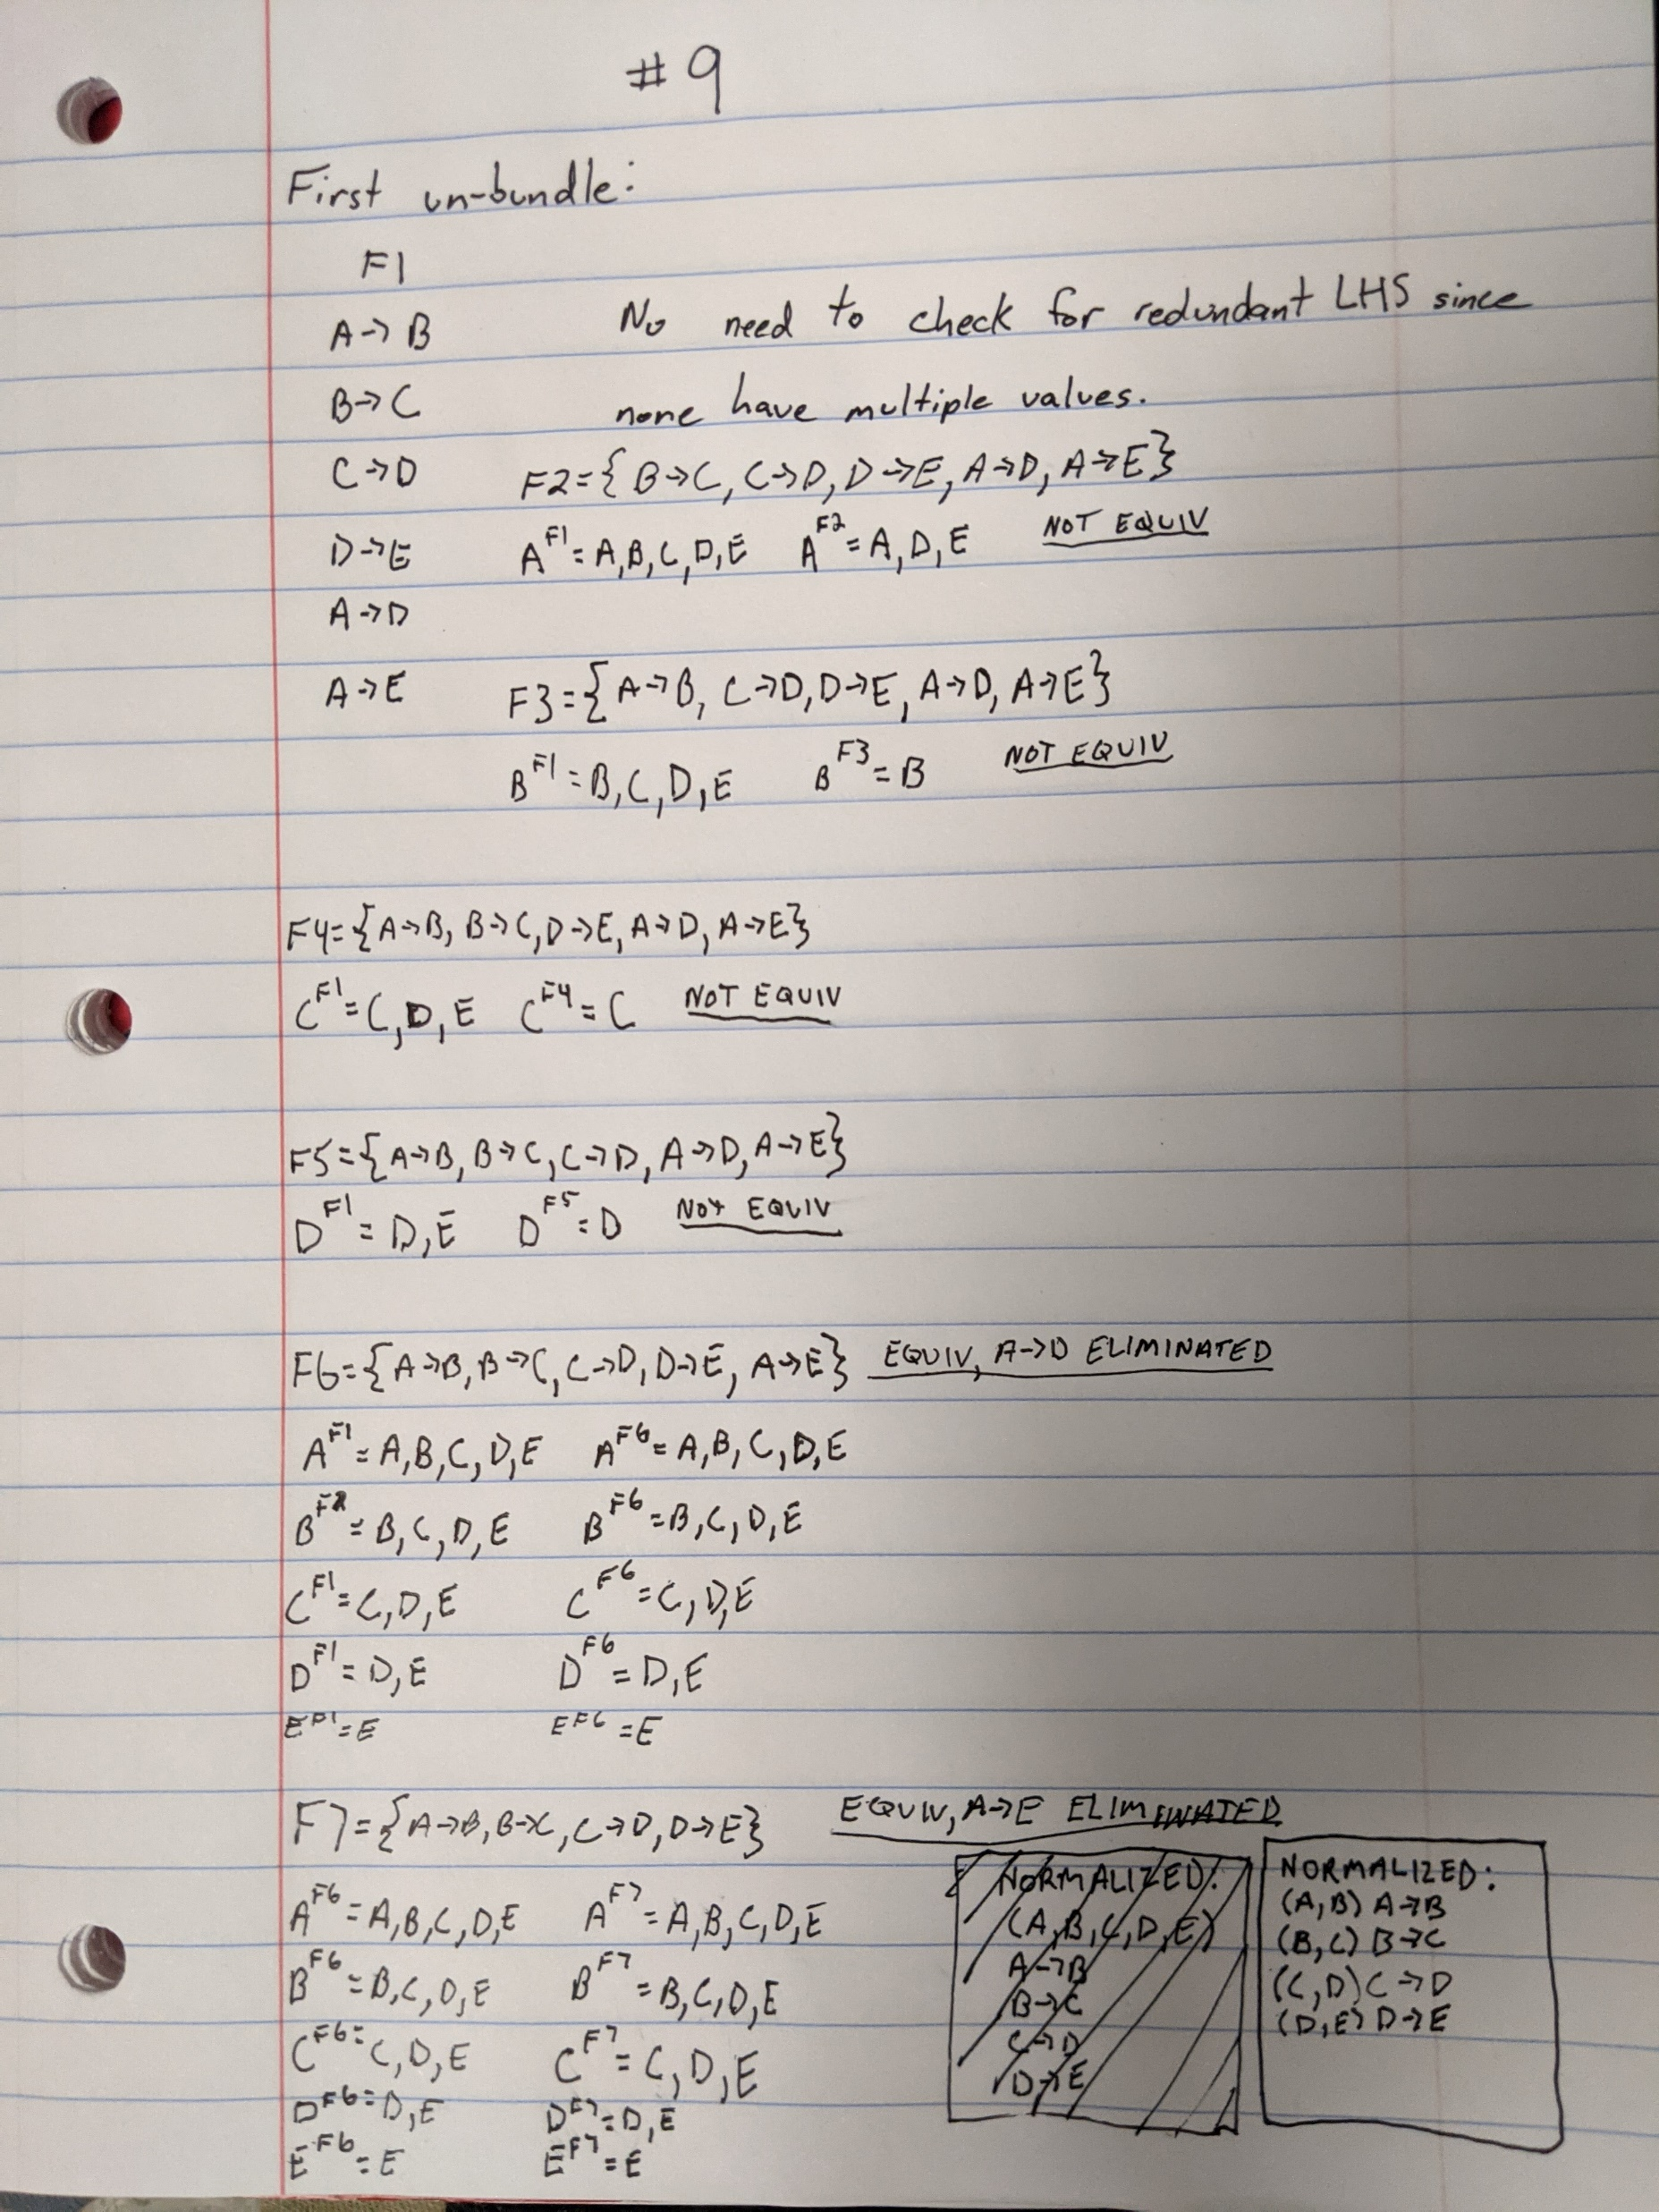 #9
First un-bundle:
F1
A→B No need to check for redundant LHS since
B→C none have multiple values.
C→D F2={B→C, C→D, D→E, A→D, A→E}
D→E A^F1=A,B,C,D,E A^F2=A,D,E NOT EQUIV
A→D
A→E F3={A→B, C→D, D→E, A→D, A→E}
B^F1=B,C,D,E B^F3=B NOT EQUIV
F4={A→B, B→C, D→E, A→D, A→E}
C^F1=C,D,E C^F4=C NOT EQUIV
F5={A→B, B→C, C→D, A→D, A→E}
D^F1=D,E D^F5=D NOT EQUIV
F6={A→B, B→C, C→D, D→E, A→E} EQUIV, A→D ELIMINATED
A^F1=A,B,C,D,E A^F6=A,B,C,D,E
B^F1=B,C,D,E B^F6=B,C,D,E
C^F1=C,D,E C^F6=C,D,E
D^F1=D,E D^F6=D,E
E^F1=E E^F6=E
F7={A→B, B→C, C→D, D→E} EQUIV, A→E ELIMINATED
A^F6=A,B,C,D,E A^F7=A,B,C,D,E
B^F6=B,C,D,E B^F7=B,C,D,E
C^F6=C,D,E C^F7=C,D,E
D^F6=D,E D^F7=D,E
E^F6=E E^F7=E
NORMALIZED:
(A,B,C,D,E)
A→B
B→C
C→D
D→E
NORMALIZED:
(A,B) A→B
(B,C) B→C
(C,D) C→D
(D,E) D→E